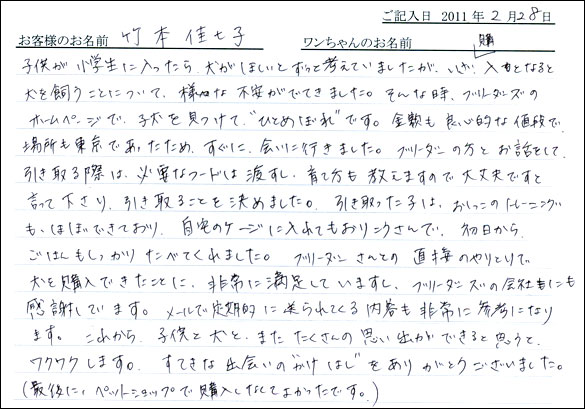 ご記入日 2011 年 2 月 28 日
お客様のお名前 竹本 佳七子 ワンちゃんのお名前
購
子供が小学生に入ったら、犬がほしいとずっと考えていましたが、いざ、入もとなると
犬を飼うことについて、様々な不安がでてきました。そんな時、ブリーダーズの
ホームページで、子犬を見つけて、"ひとめぼれ"です。金額も良心的な値段で、
場所も東京であったため、すぐに、会いに行きました。ブリーダーの方とお話をして、
引き取る際は、必要なフードは渡すし、育て方も教えますので大丈夫ですと
言って下さり、引き取ることを決めました。引き取った子は、おしっこのトレーニング
も、ほぼできており、自宅のケージに入れてもおりこうさんで、初日から、
ごはんもしっかりたべてくれました。ブリーダーさんとの直接のやりとりで
犬を購入できたことに、非常に満足していますし、ブリーダーズの会社にも
感謝しています。メールで定期的に送られてくる内容も非常に参考になり
ます。これから、子供と犬と、またたくさんの思い出ができると思うと、
ワクワクします。すてきな出会いの"かけはし"をありがとうございました。
(最後に、ペットショップで購入しなくてよかったです。)